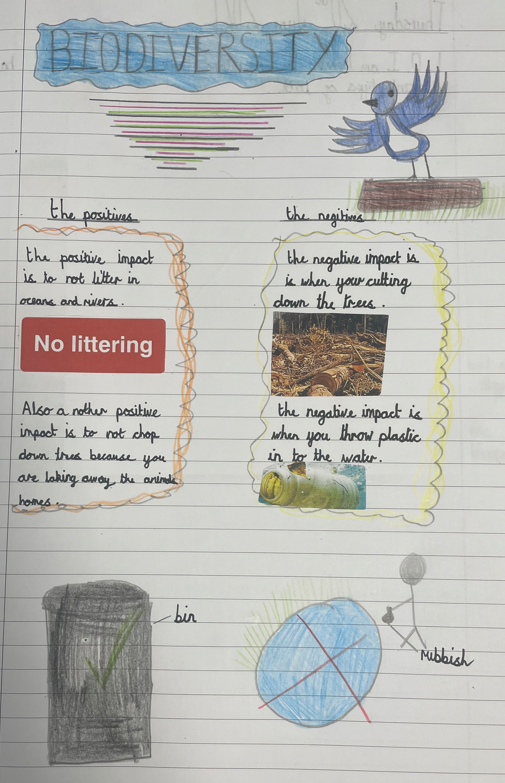 BIODIVERSITY
the positives
the positive impact
is to not litter in
oceans and rivers.
No littering
Also a nother positive
impact is to not chop
down trees because you
are taking away the animals
homes.
the negitives
the negative impact is
is when your cutting
down the trees.
the negative impact is
when you throw plastic
in to the water.
bin
rubbish